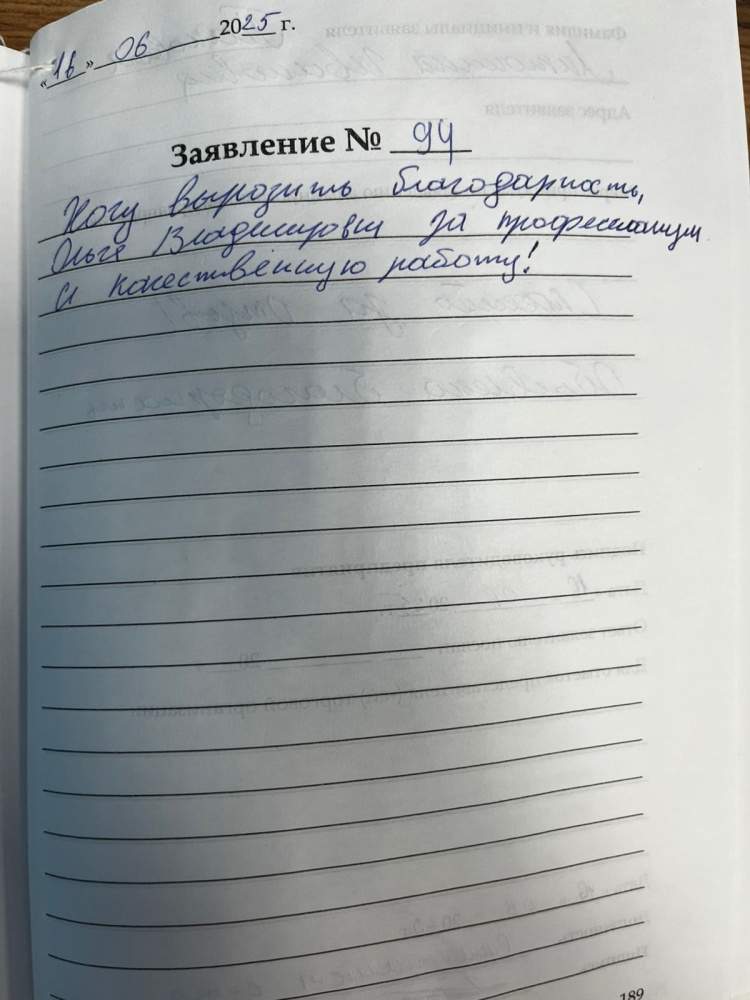 «16» 06 2025 г.
Заявление № 94
Хочу вырозить благодарность,
Ольге Владимировны за профессиональную
и качественную работу!
189